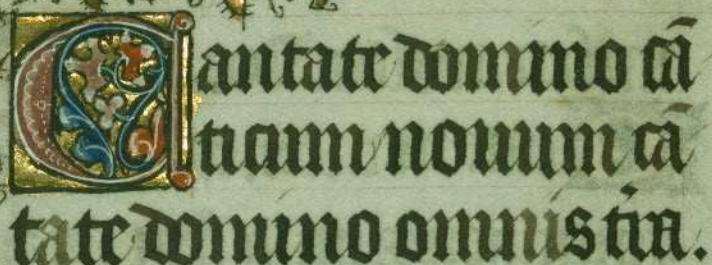 Cantate domino cā
ticum nouum cā
tate domino omnis tr̄a.